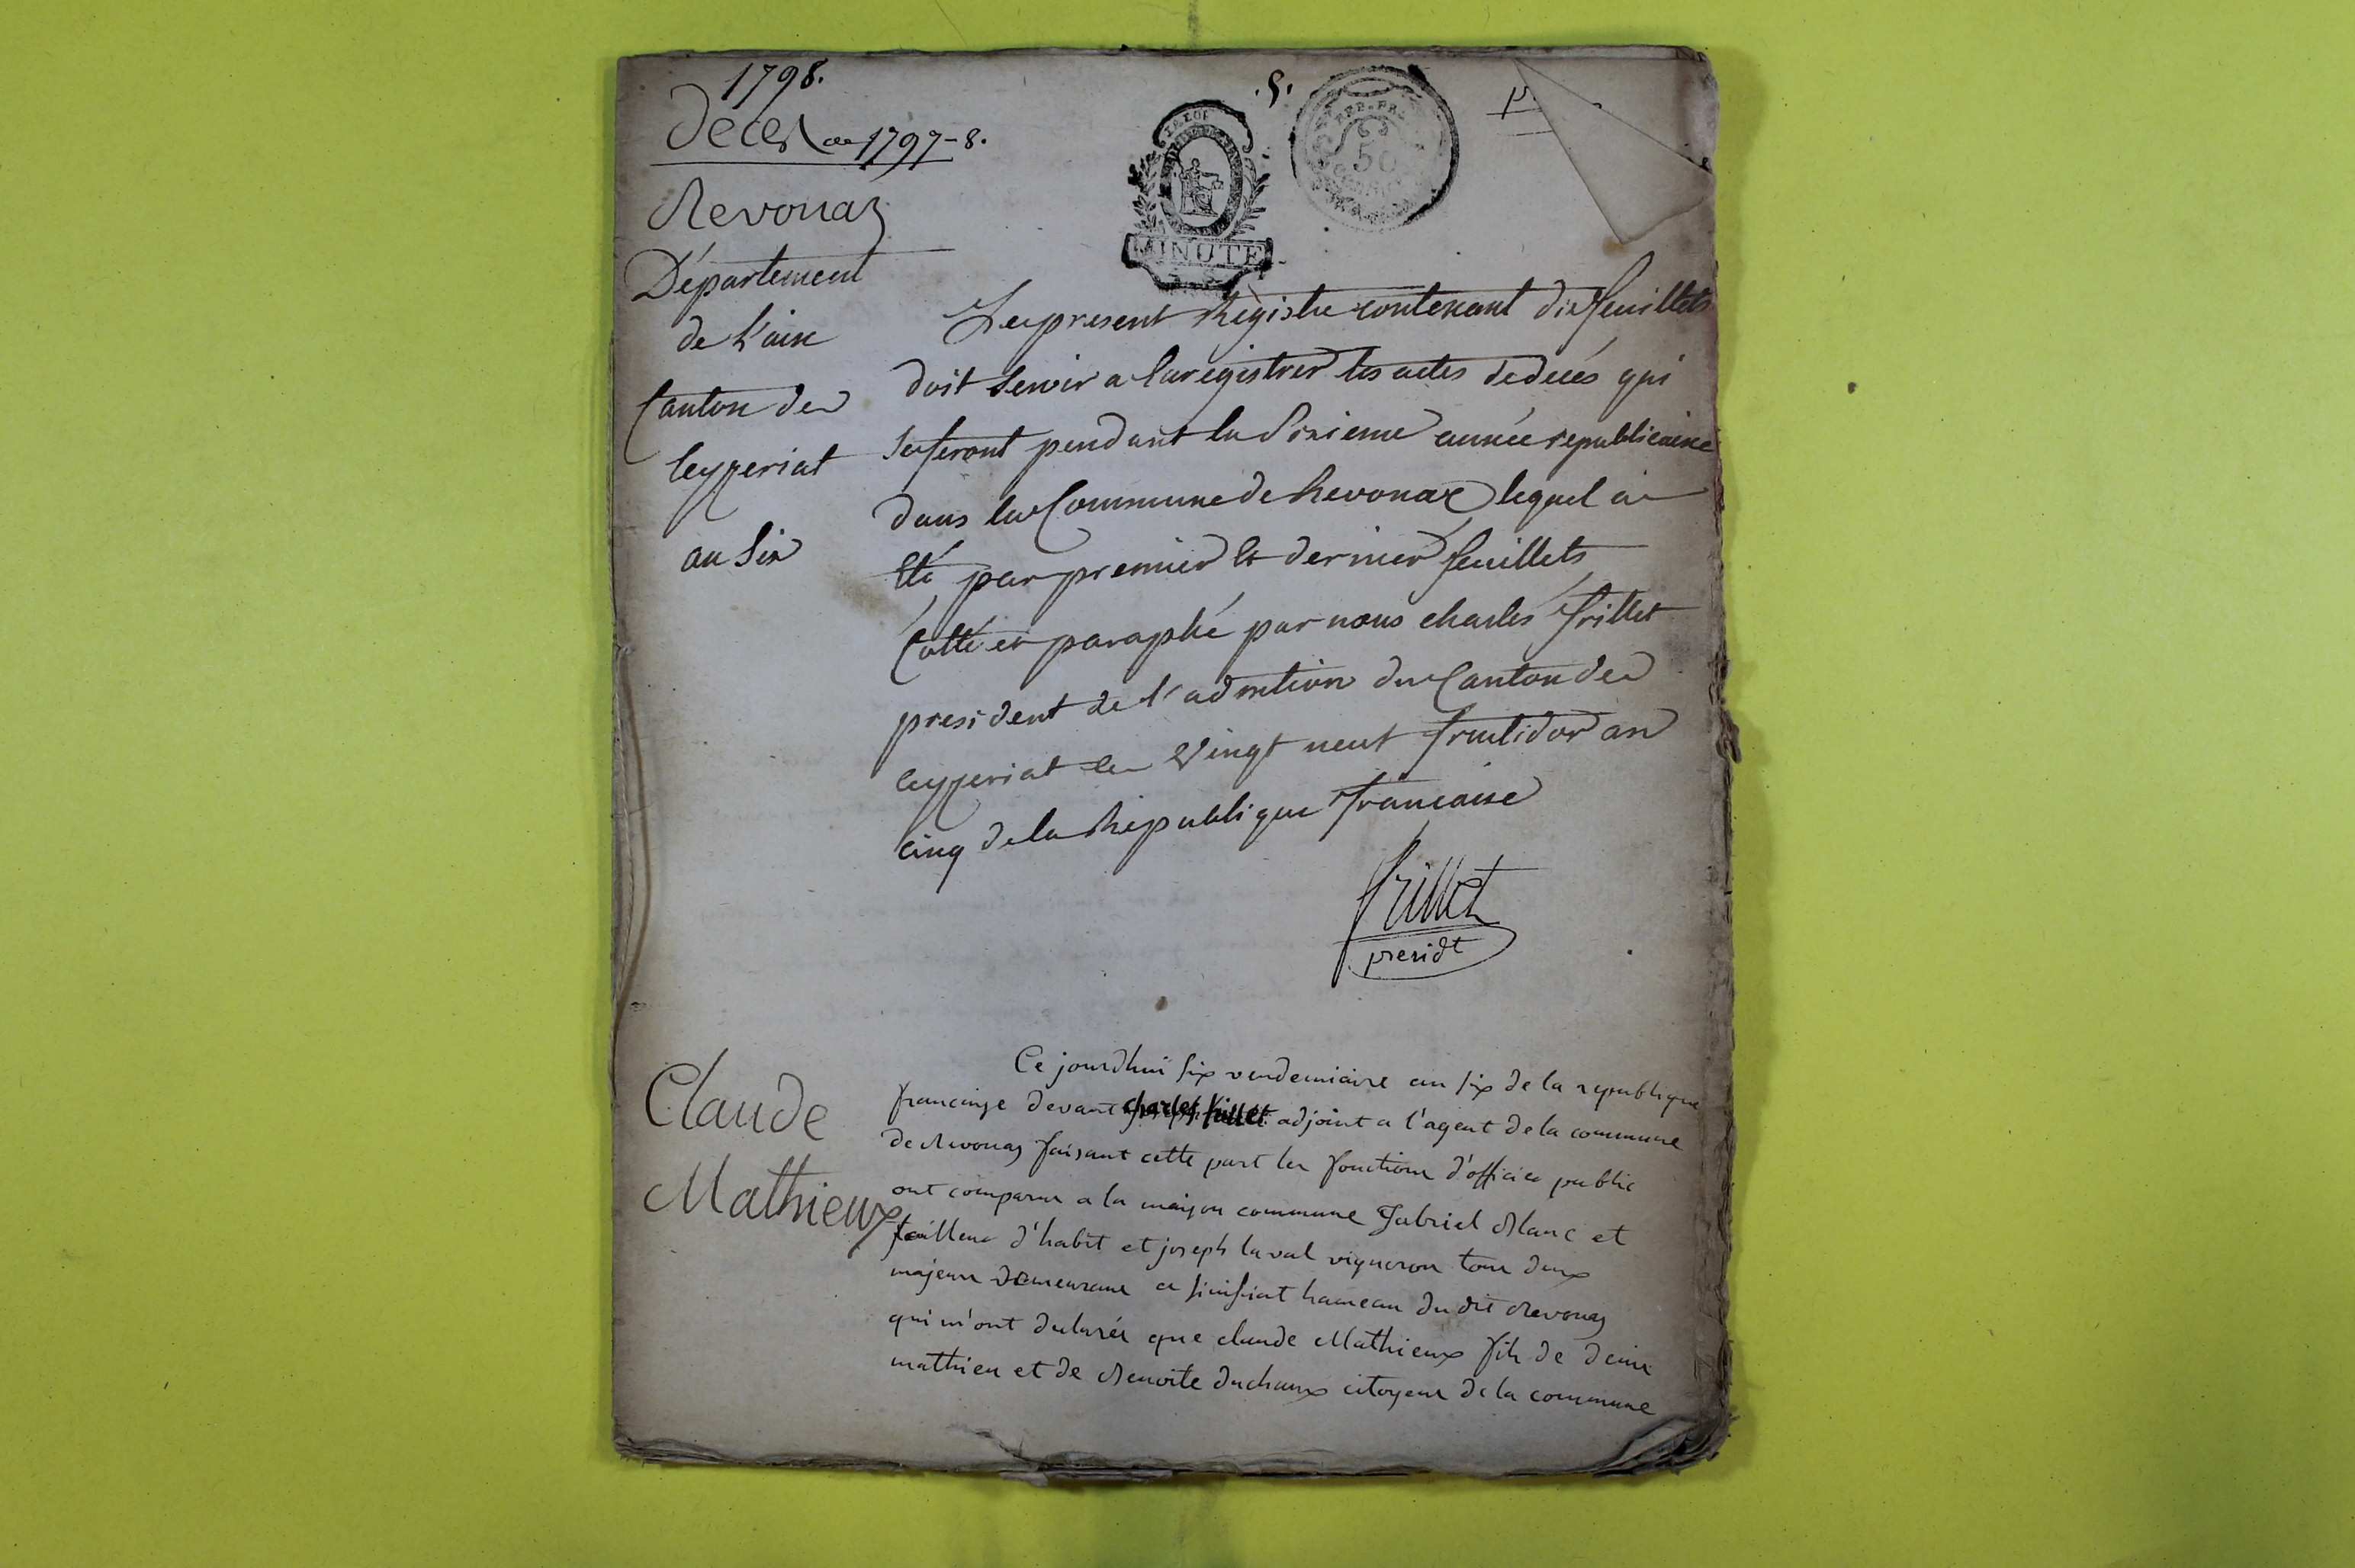 1798.
.5.
Décès an 1797-8.
Revonaz
MINUTE
50
Département
de L'ain
Canton de
Ceyzeriat
an Six
Le present Registre contenant dix feuillets
doit servir a Enregistrer les actes de décés qui
se feront pendant la Sixieme année republicaine
dans la Commune de Revonax lequel à
Eté par premier Et dernier feuillets
Cotté et paraphé par nous charles frillet
president de l'admtion du Canton de
Ceyzeriat le Vingt neuf fructidor an
cinq de la Republique francaise
frillet
presidt
Claude
Mathieux
Ce jourdhui six vendemiaire an six de la republique
francaise devant charles frillet adjoint a l'agent de la commune
de Revonaz faisant cette part les fonctions d'officier public
ont comparu a la maison commune Gabriel Blanc et
tailleur d'habit et joseph laval vigneron tous deux
majeurs demeurans a Sinsiat hameau du dit Revonaz
qui m'ont declarés que claude Mathieux fils de denis
mathieu et de Benoite duchaux citoyens de la commune